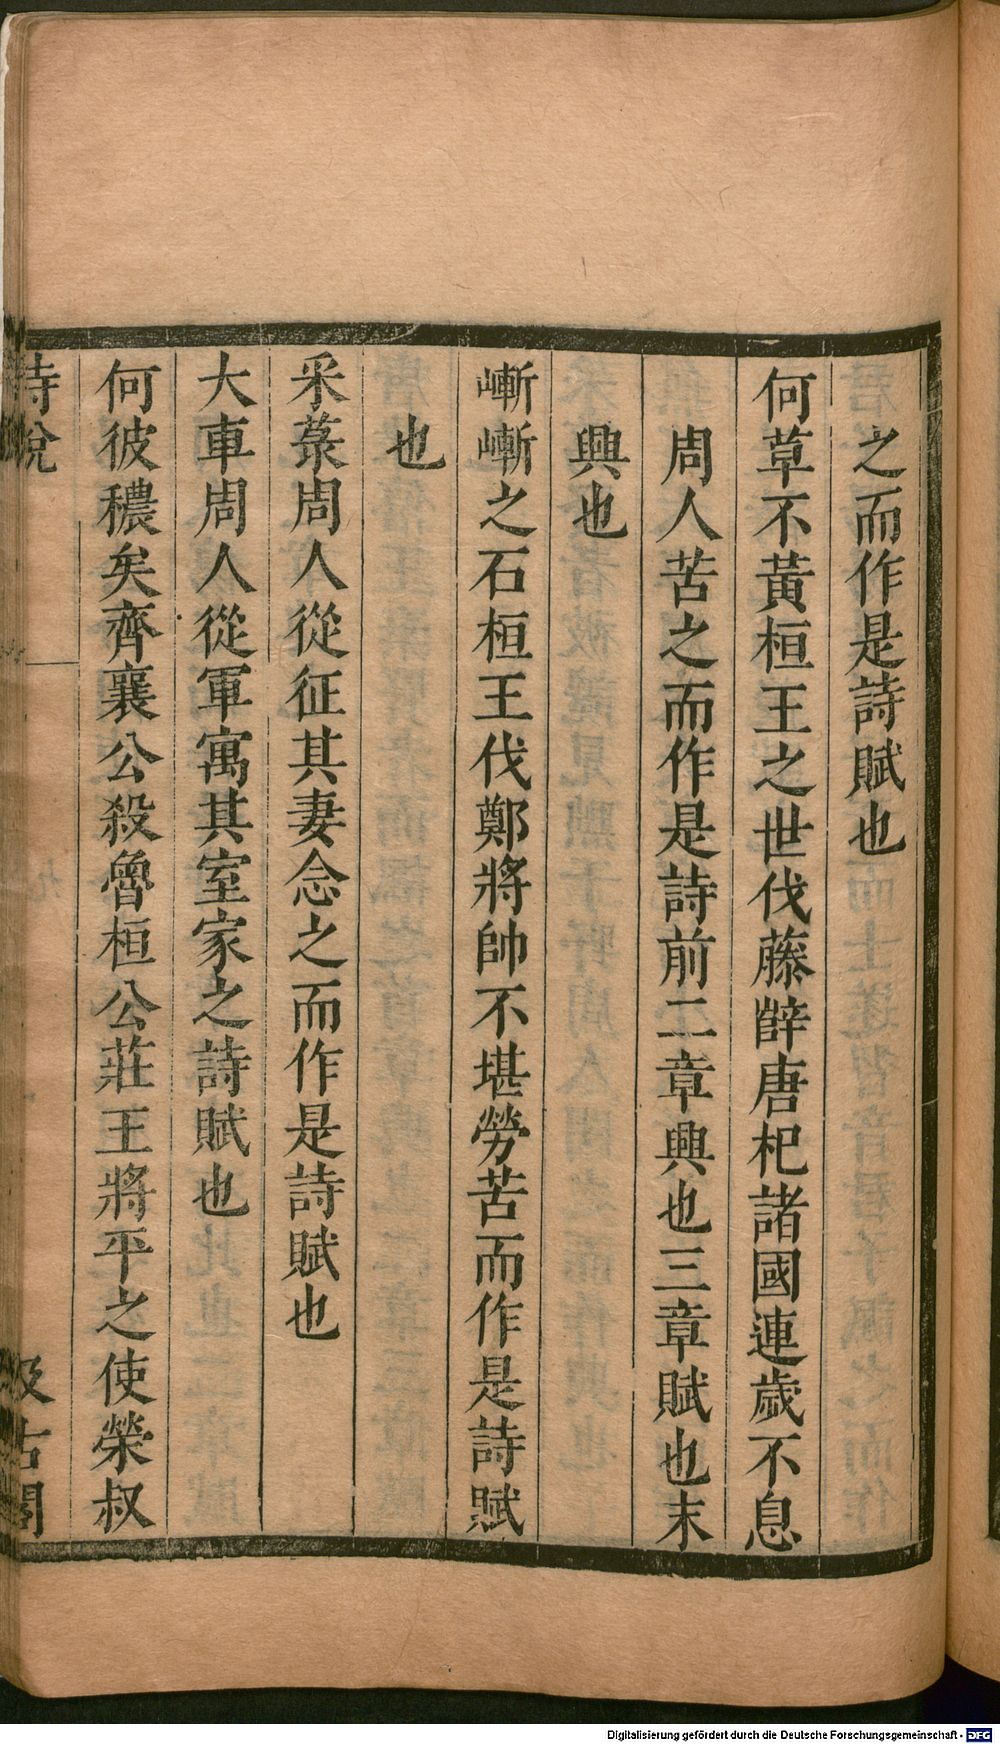 之而作是詩賦也
何草不黃桓王之世伐藤薛唐杞諸國連歲不息
周人苦之而作是詩前二章興也三章賦也末
興也
嶄嶄之石桓王伐鄭將帥不堪勞苦而作是詩賦
也
采菉周人從征其妻念之而作是詩賦也
大車周人從軍寓其室家之詩賦也
何彼穠矣齊襄公殺魯桓公莊王將平之使榮叔
詩說
汲古閣
Digitalisierung gefördert durch die Deutsche Forschungsgemeinschaft - DFG